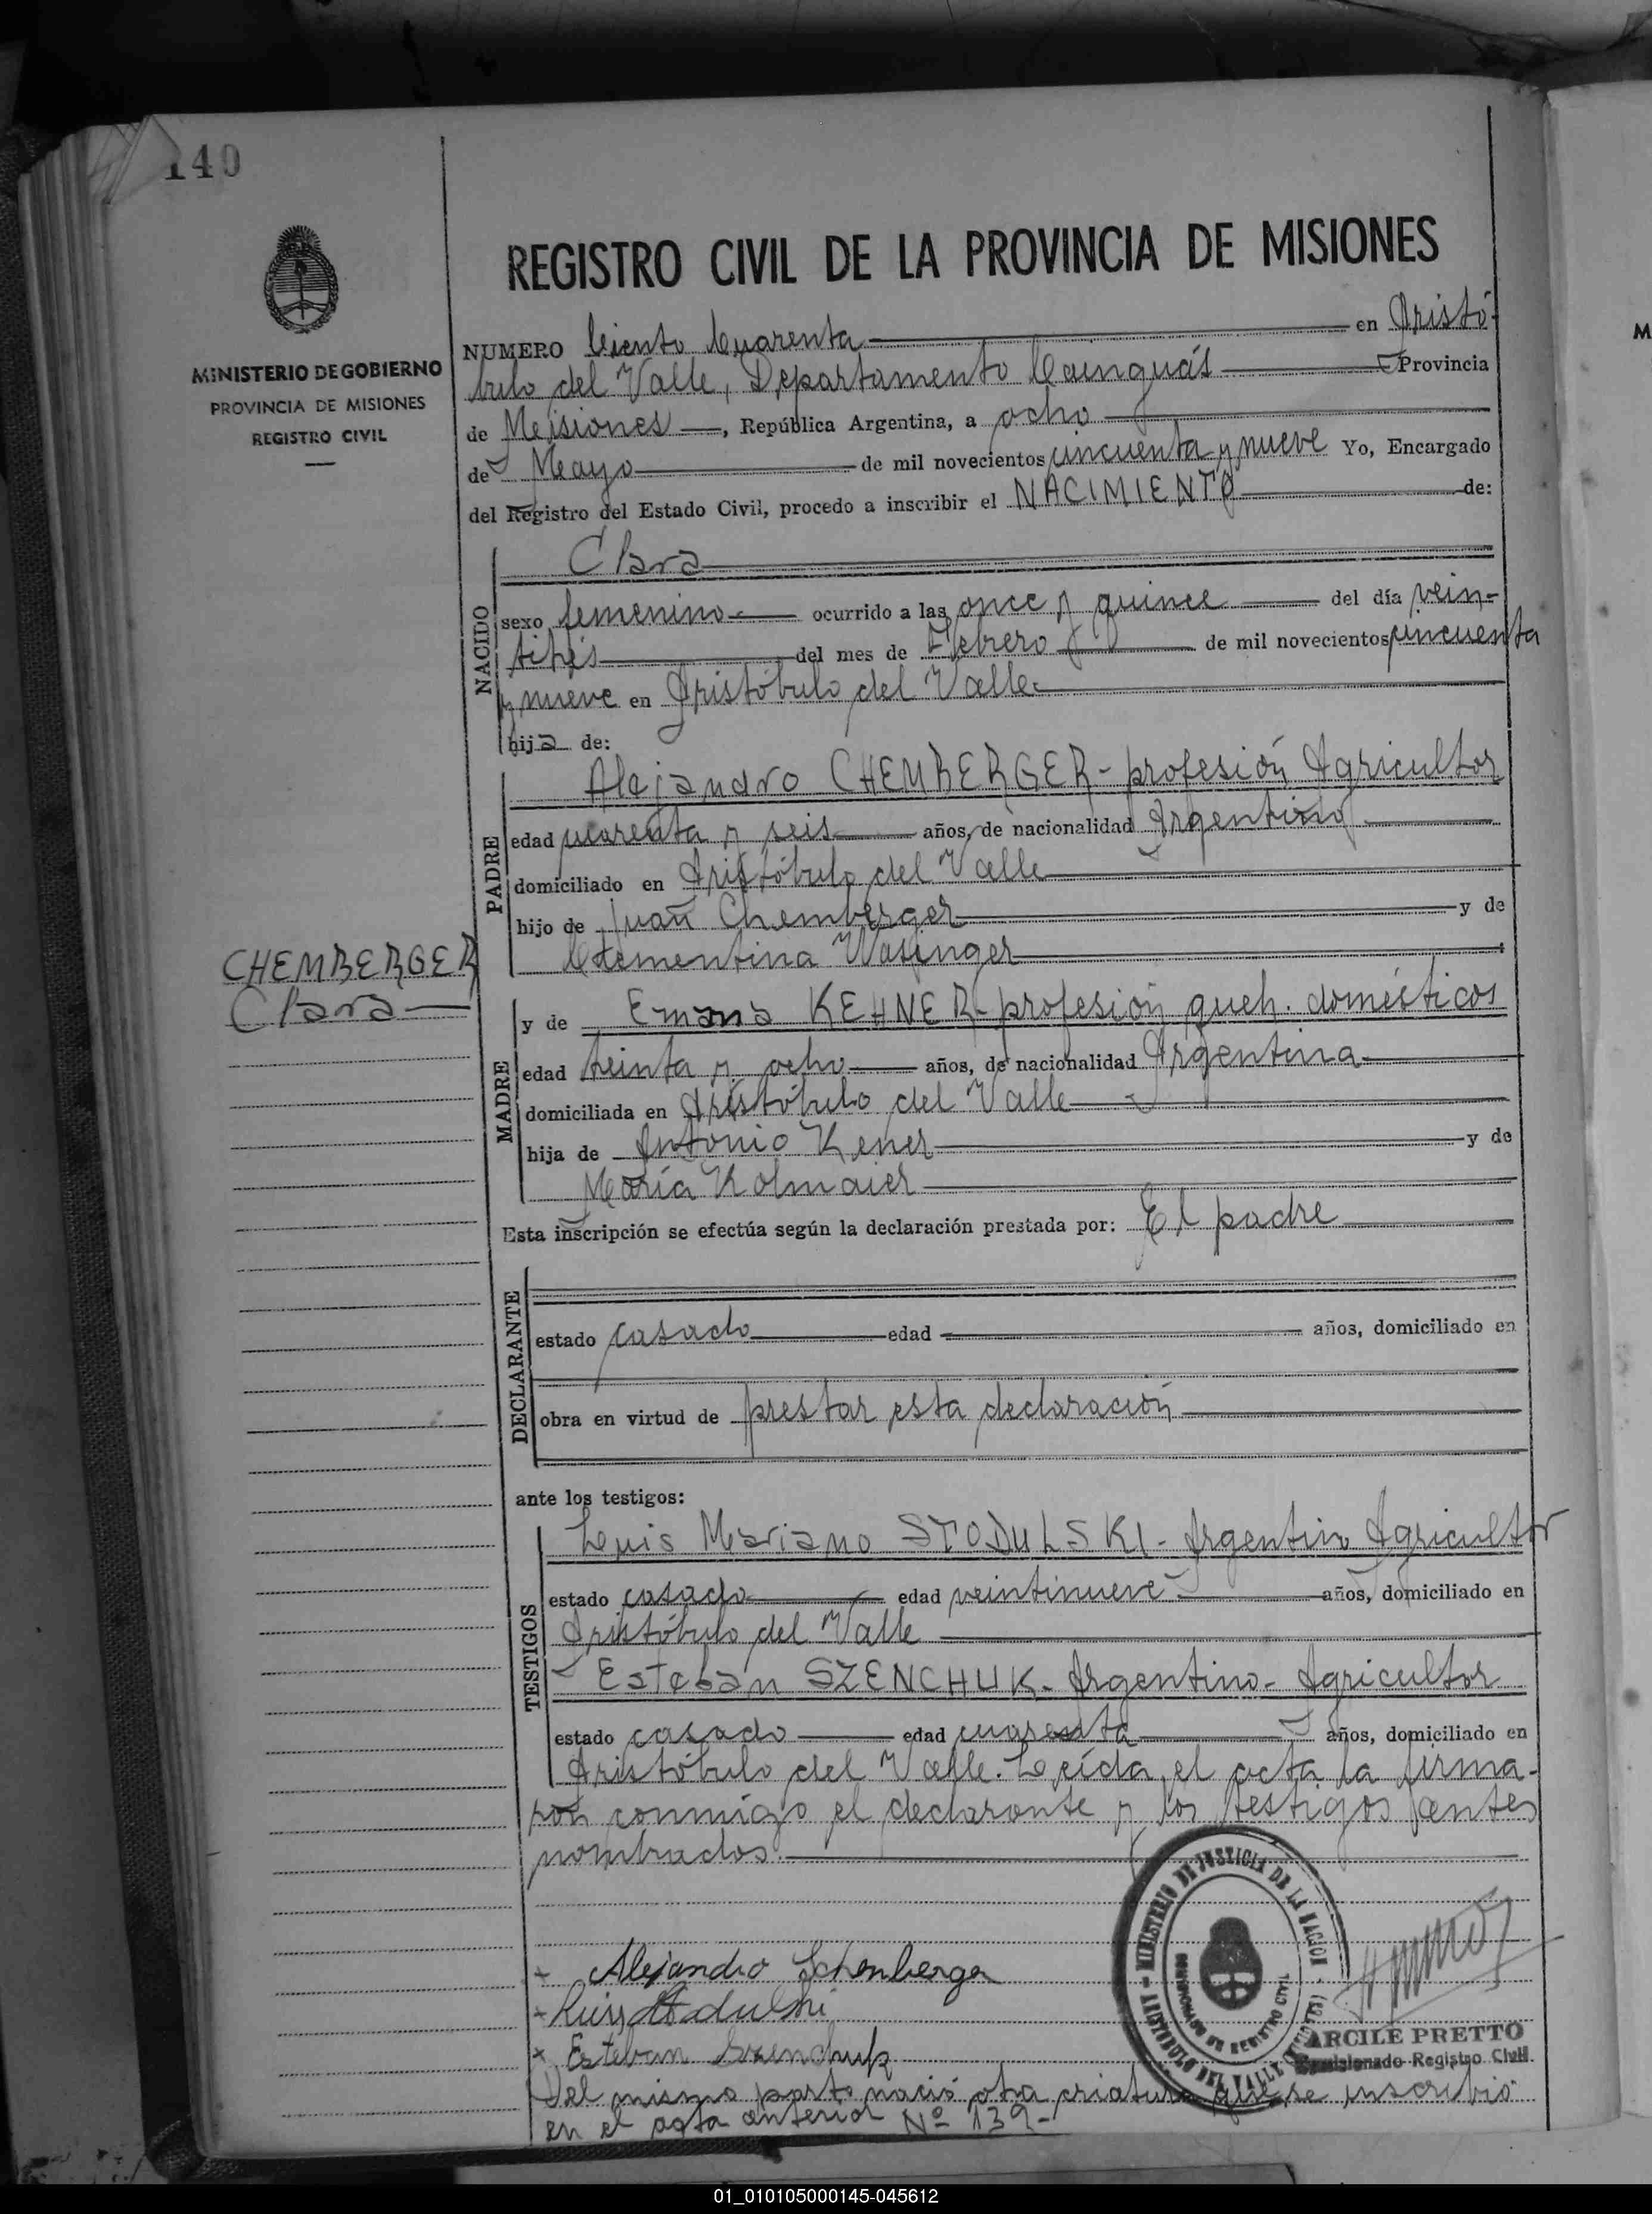 140
MINISTERIO DE GOBIERNO
PROVINCIA DE MISIONES
REGISTRO CIVIL
REGISTRO CIVIL DE LA PROVINCIA DE MISIONES
NUMERO Ciento Cuarenta en Aristó-
bulo del Valle, Departamento Cainguás Provincia
de Misiones, República Argentina, a ocho
de Mayo de mil novecientos cincuenta y nueve Yo, Encargado
del Registro del Estado Civil, procedo a inscribir el NACIMIENTO de:
NACIDO
Clara
sexo femenino ocurrido a las once y quince del día vein-
titrés del mes de Febrero de mil novecientos cincuenta
y nueve en Aristóbulo del Valle
hija de:
PADRE
Alejandro CHEMBERGER - profesión Agricultor
edad cuarenta y seis años, de nacionalidad Argentino
domiciliado en Aristóbulo del Valle
hijo de Juan Chemberger y de
Clementina Wasinger
CHEMBERGER
Clara
MADRE
y de Emma KEHNER - profesión queh. domésticos
edad treinta y ocho años, de nacionalidad Argentina
domiciliada en Aristóbulo del Valle
hija de Antonio Kener y de
María Kolmaier
Esta inscripción se efectúa según la declaración prestada por: El padre
DECLARANTE
estado casado edad años, domiciliado en
obra en virtud de prestar esta declaración
ante los testigos:
TESTIGOS
Luis Mariano STODULSKI - Argentino Agricultor
estado casado edad veintinueve años, domiciliado en
Aristóbulo del Valle
Esteban SZENCHUK - Argentino - Agricultor
estado casado edad cuarenta años, domiciliado en
Aristóbulo del Valle. Leída el acta la firma-
ron conmigo el declarante y los testigos antes
nombrados.
MINISTERIO DE JUSTICIA DE LA NACION
ARISTOBULO DEL VALLE (MISIONES)
COMISIONADO DE REGISTRO CIVIL
+ Alejandro Schenberger
+ Luis Stodulski
+ Esteban Szenchuk
ARCILE PRETTO
Comisionado Registro Civil
Del mismo parto nació otra criatura que se inscribió
en el acta anterior Nº 139.-
01_010105000145-045612